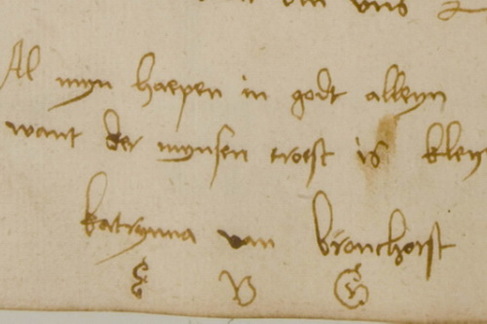 vns
Al myn haepen in godt alleyn
want der mynsen troest is kley
katrynna van bronchorst